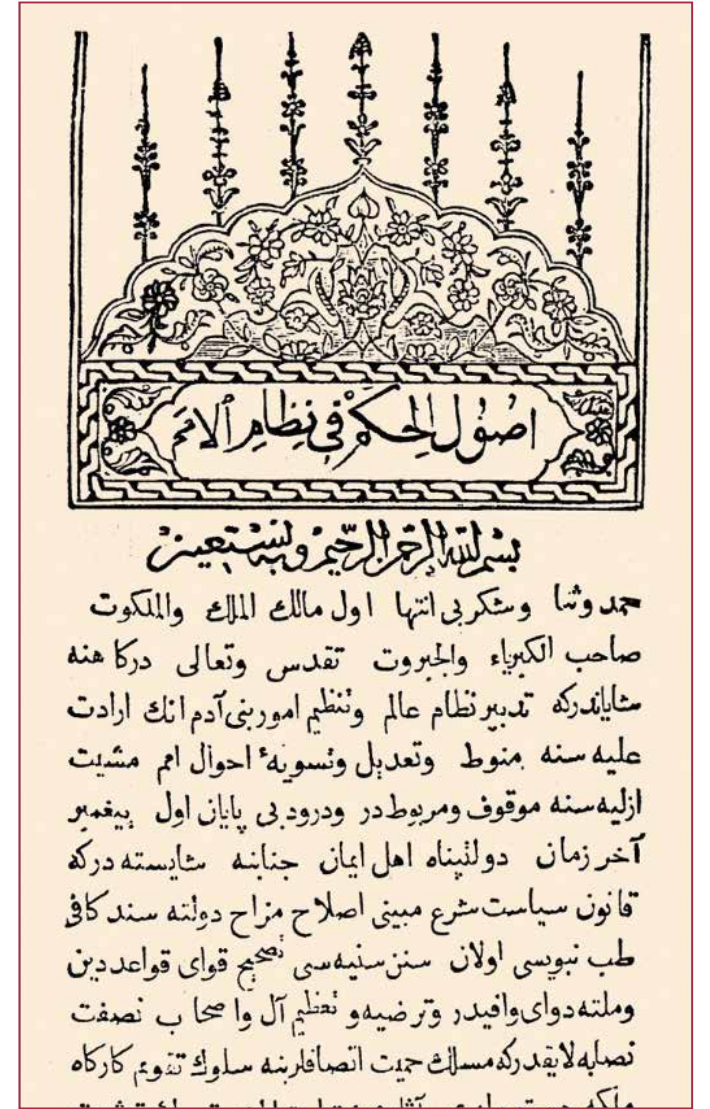 اصول الحكم فى نظام الامم
بسم الله الرحمن الرحيم وبه نستعين
حمد وثنا وشكر بى انتها اول مالك الملك والملكوت
صاحب الكبرياء والجبروت تقدس وتعالى دركاهنه
شاياندركه تدبير نظام عالم وتنظيم امور بنى آدم انك ارادت
عليه سنه منوط وتعديل وتسويهٔ احوال امم مشيت
ازليه سنه موقوف ومربوطدر ودرود بى پايان اول پيغمبر
آخر زمان دولتپناه اهل ايمان جنابنه شايسته دركه
قانون سياست شرع مبينى اصلاح مزاح دولته سند كافى
طب نبويسى اولان سنن سنيه سى تصحيح قواى قواعد دين
وملته دواى وافيدر وترضيه و تعظيم آل واصحاب نصفت
نصابه لايقدركه مسلك حميت انصافلرينه سلوك تقويم كاركاه